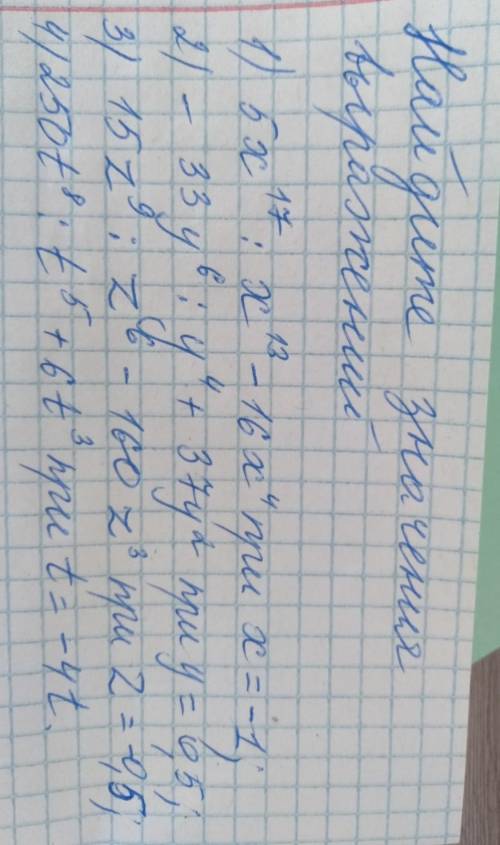 Найдите значения
выражений
1) 5x¹⁷ : x¹³ - 16x⁴ при x = -1;
2) - 33y⁶ : y⁴ + 37y² при y = 0,5;
3) 15z⁹ : z⁶ - 160z³ при z = -0,5;
4) 250t⁸ : t⁵ + 6t³ при t = -4t.